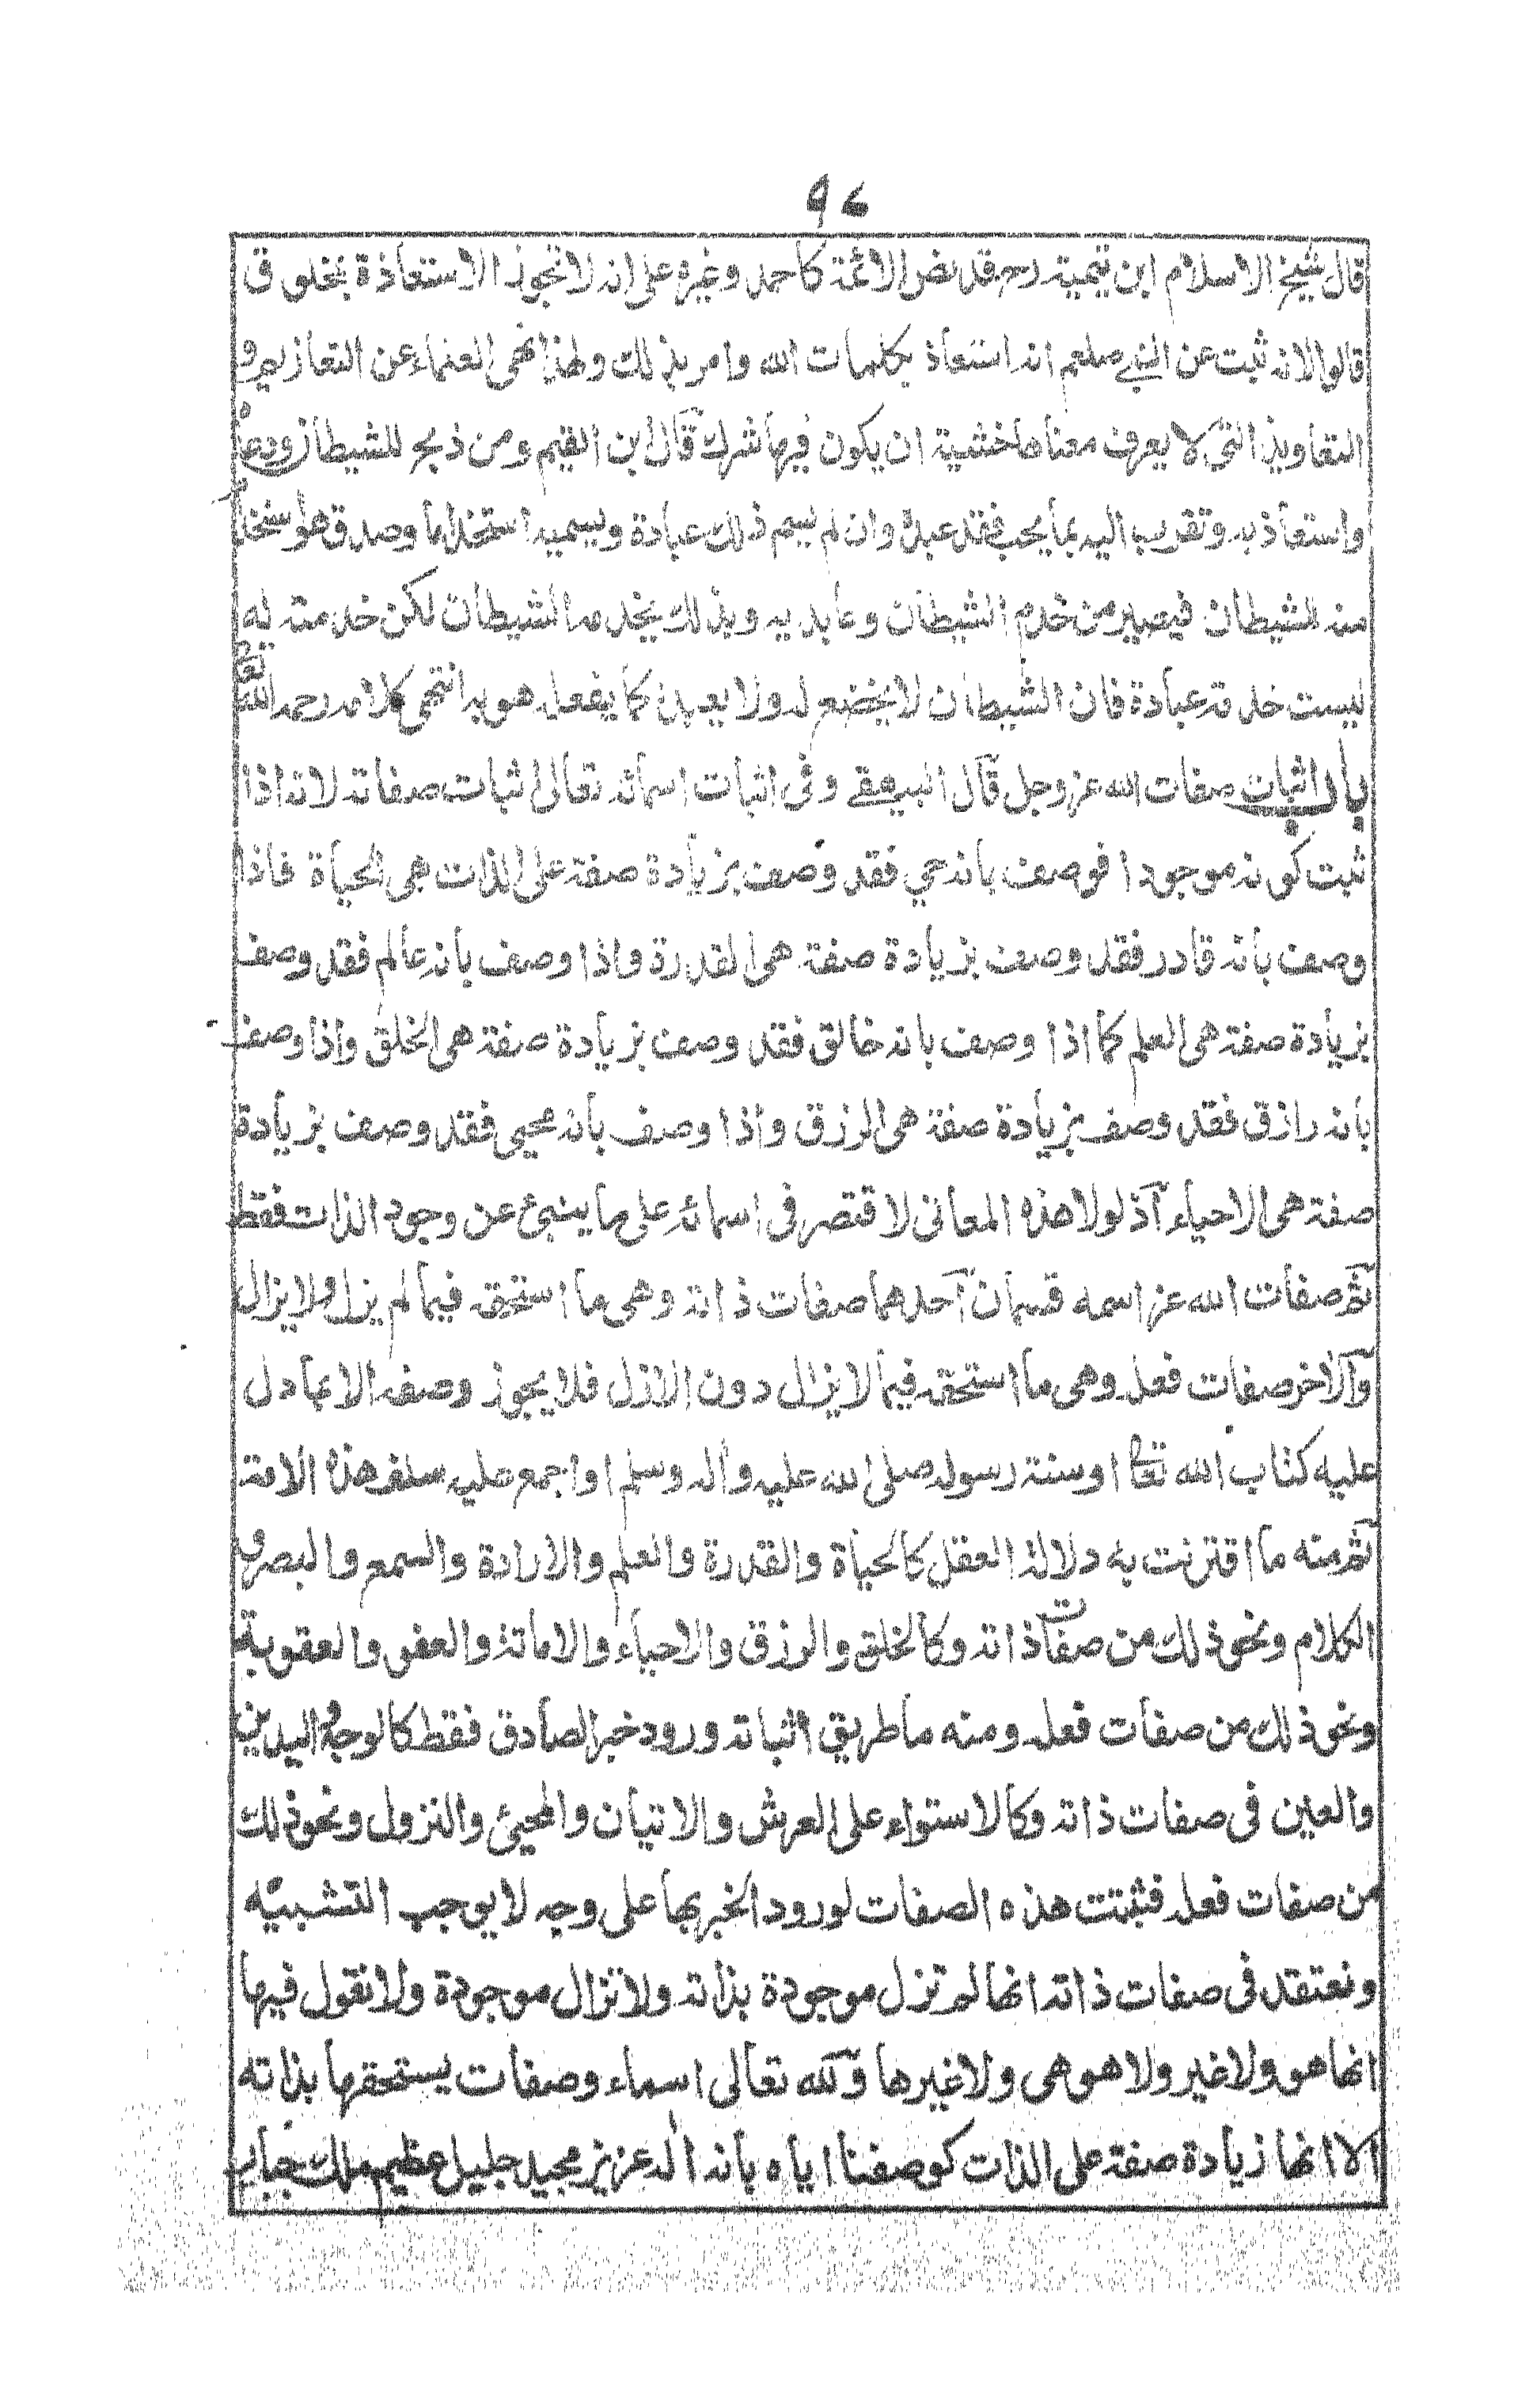 ٩٤
قال شيخ الاسلام ابن تيمية رح قد نص الائمة كاحمد وغيره على انه لا تجوز الاستعاذة بمخلوق
قالوا لانه ثبت عن النبي صلعم انه استعاذ بكلمات الله وامر بذلك ولهذا نهى العلماء عن التعازيم و
التعاويذ التى لا يعرف معناها خشية ان يكون فيها شرك قال ابن القيم ومن ذبح للشيطان ودعاه
واستعاذ به وتقرب اليه بما يحب فقد عبده وان لم يسم ذلك عبادة ويسميه استخداما وصدق هو استخدام
منه للشيطان فيصير من خدم الشيطان وعابديه وبذلك يخدمه الشيطان لكن خدمته له
ليست خدمة عبادة فان الشيطان لا يخضع له ولا يعبده كما يفعل هو به انتهى كلامه رحمه الله تعا
باب اثبات صفات الله عز وجل قال البيهقي وفى اثبات اسمائه تعالى اثبات صفاته لانه اذا
ثبت كونه موجودا فوصف بانه حي فقد وصف بزيادة صفة على الذات هى الحياة فاذا
وصف بانه قادر فقد وصف بزيادة صفة هى القدرة واذا وصف بانه عالم فقد وصف
بزيادة صفة هى العلم كما اذا وصف بانه خالق فقد وصف بزيادة صفة هى الخلق واذا وصف
بانه رازق فقد وصف بزيادة صفة هى الرزق واذا وصف بانه محيي فقد وصف بزيادة
صفة هى الاحياء اذ لولا هذه المعانى لاقتصر فى اسمائه على ما ينبئ عن وجود الذات فقط
ثم صفات الله عز اسمه قسمان احدهما صفات ذاته وهى ما استحقه فيما لم يزل ولا يزال
والاخر صفات فعله وهى ما استحقه فيما لا يزال دون الازل فلا يجوز وصفه الا بما دل
عليه كتاب الله تعا او سنة رسوله صلى الله عليه واله وسلم او اجمع عليه سلف هذه الامة
ثم منه ما اقترنت به دلالة العقل كالحياة والقدرة والعلم والارادة والسمع والبصر و
الكلام ونحو ذلك من صفات ذاته وكالخلق والرزق والاحياء والاماتة والعفو والعقوبة
ونحو ذلك من صفات فعله ومنه ما طريق اثباته ورود خبر الصادق فقط كالوجه واليدين
والعين فى صفات ذاته وكالاستواء على العرش والاتيان والمجيئ والنزول ونحو ذلك
من صفات فعله فثبتت هذه الصفات لورود الخبر بها على وجه لا يوجب التشبيه
ونعتقد فى صفات ذاته انها لم تزل موجودة بذاته ولا تزال موجودة ولا نقول فيها
انها هو ولا غير ولا هو هى ولا غيرها ولله تعالى اسماء وصفات يستحقها بذاته
الا انها زيادة صفة على الذات كوصفنا اياه بانه اله عزيز مجيد جليل عظيم ملك جبار